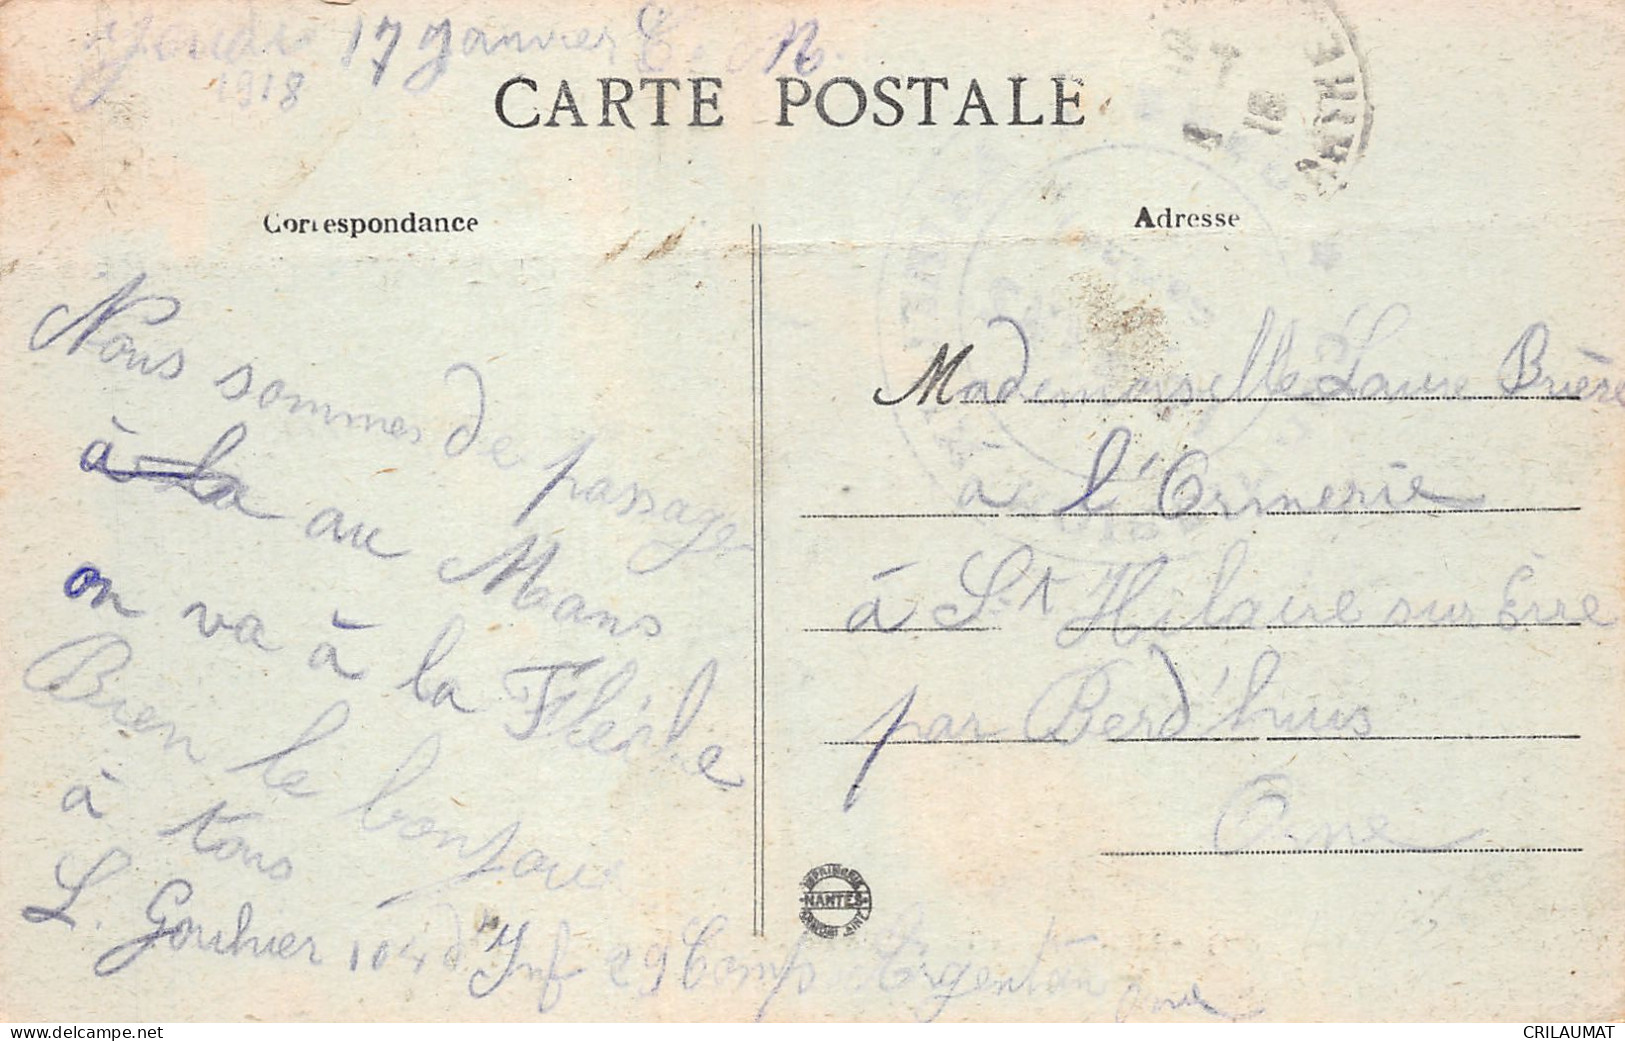 Jeudi 17 Janvier
1918
CARTE POSTALE
Correspondance
Nous sommes de passage
à la au Mans
on va à la Flèche
Bien le bonjour
à tous
L. Gouhier 104 d'Inf 29 Comp Argentan
Orne
Adresse
Mademoiselle Laure Brière
à l'Ormerie
à St Hilaire sur Erre
par Berd'huis
Orne
IMPRIMERIE
NANTES
SARTHE
18
CRILAUMAT